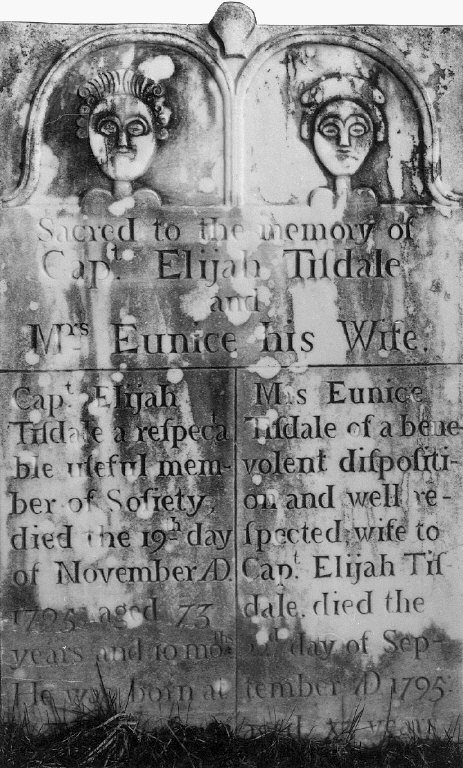 Sacred to the memory of
Capt. Elijah Tiſdale
and
Mrs Eunice his Wife.
Capt. Elijah
Tiſdale a reſpecta
ble uſeful mem-
ber of Soſiety,
died the 19th day
of November AD.
1795 aged 73
years and 10 moths
He was born at
Mrs Eunice
Tiſdale of a bene-
volent diſpoſiti-
on and well re-
ſpected wife to
Capt. Elijah Tiſ-
dale. died the
day of Sep-
tember AD 1795.
years